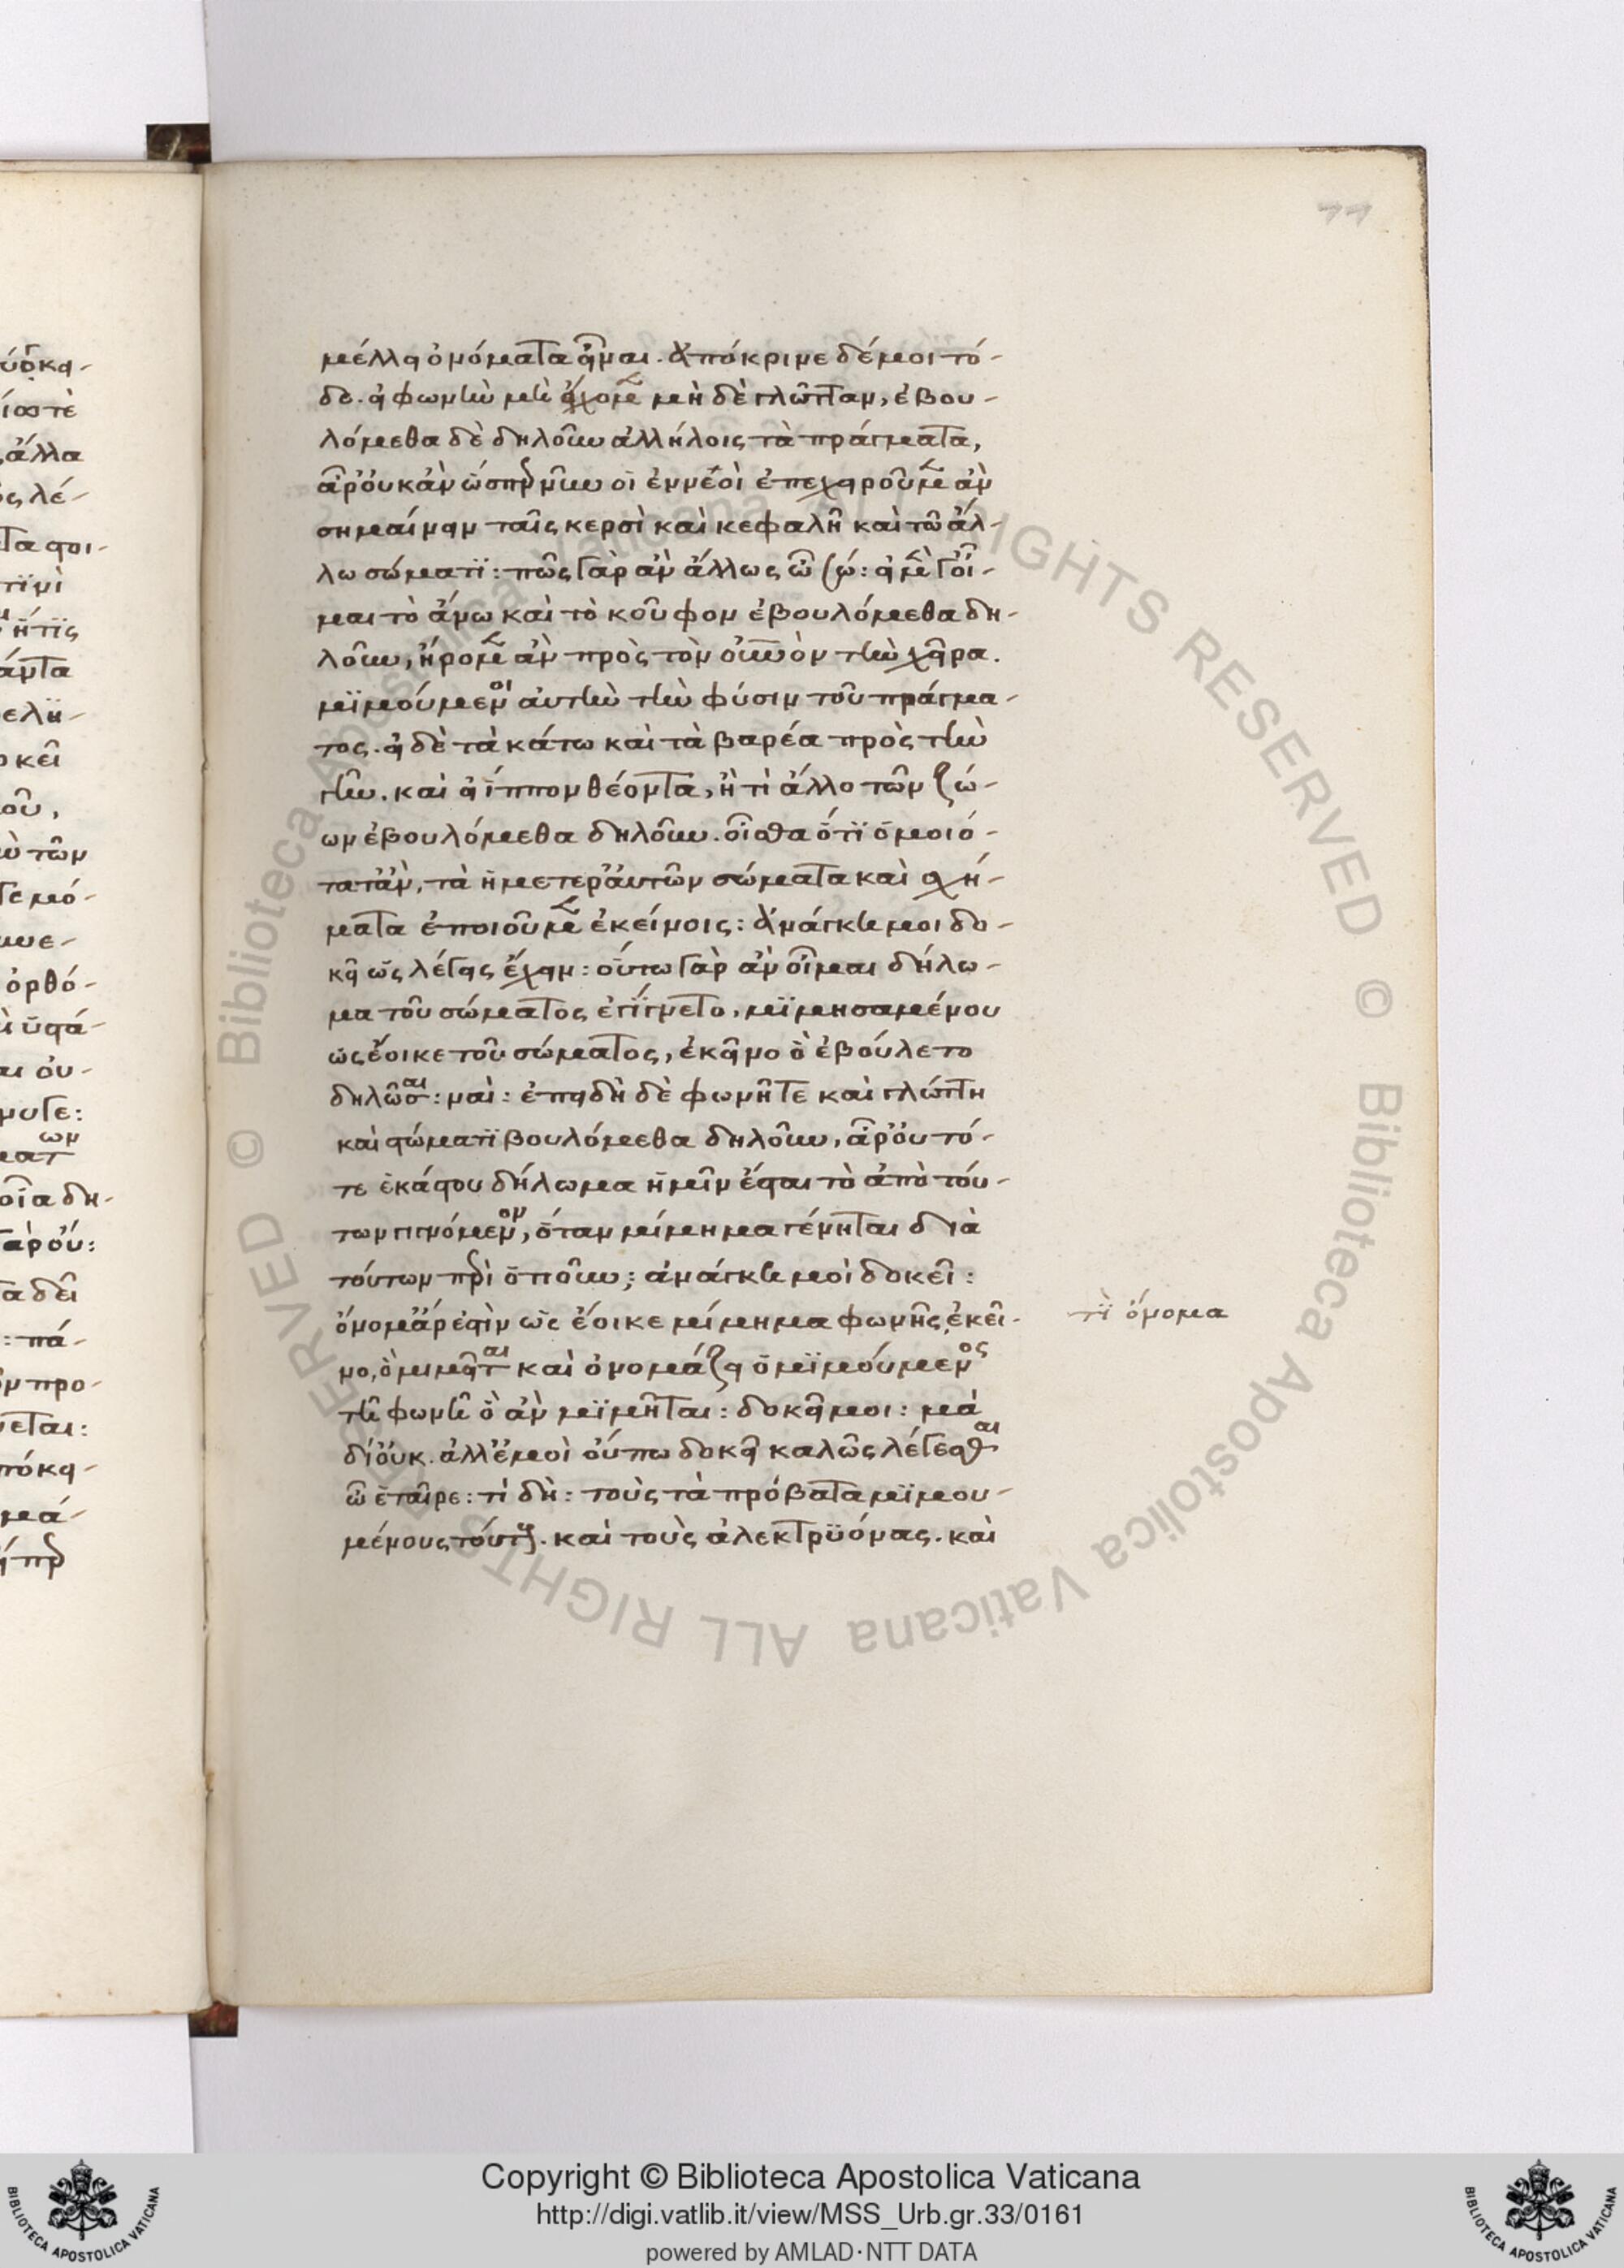 ύοκει-
ίοστὲ
ἄλλα
ς λέ-
τα ποι-
τϊνὶ
ἥτϊς
άντα
ελη-
οκεῖ
οῦ,
ὺ τῶν
τεμό-
ὀρθό-
αι οὐ-
νυγε:
ματων
οἷα δη-
γὰρ οὖν:
α δεῖ
: πά-
ν προ-
εται:
πόκει-
μά-
μέλλει ὀνόματα εἶναι. Ἀπόκριναι δέ μοι τό-
δε. εἰ φωνὴν μὴ εἴχομεν μὴ δὲ γλῶτταν, ἐβου-
λόμεθα δὲ δηλοῦν ἀλλήλοις τὰ πράγματα,
ἆρ' οὐκ ἂν ὥσπερ νῦν οἱ ἐννεοὶ ἐπεχειροῦμεν ἂν
σημαίνειν ταῖς χερσὶ καὶ κεφαλῆ καὶ τῶ ἄλ-
λω σώματϊ: πῶς γὰρ ἂν ἄλλως ὦ σώ: εἰ μὲν γ' οἶ-
μαι τὸ ἄνω καὶ τὸ κοῦφον ἐβουλόμεθα δη-
λοῦν, ἤρομεν ἂν πρὸς τὸν οὐνὸν τὴν χεῖρα.
μϊμούμενοι αὐτὴν τὴν φύσιν τοῦ πράγμα-
τος. εἰ δὲ τὰ κάτω καὶ τὰ βαρέα πρὸς τὴν
γῆν. καὶ εἰ ἵππον θέοντα, ἤ τι ἄλλο τῶν ζώ-
ων ἐβουλόμεθα δηλοῦν. οἶσθα ὅτϊ ὁμοιό-
τατ' ἂν, τὰ ἡμέτερ' αὐτῶν σώματα καὶ σχή-
ματα ἐποιοῦμεν ἐκείνοις: Ἀνάγκη μοι δο-
κεῖ ὡς λέγεις ἔχειν: οὕτω γὰρ ἂν οἶμαι δήλω-
μα τοῦ σώματος ἐγίγνετο, μϊμησαμένου
ὡς ἔοικε τοῦ σώματος, ἐκεῖνο ὃ ἐβούλετο
δηλῶσαι: ναί: ἐπειδὴ δὲ φωνῆ τε καὶ γλώττη
καὶ στόματϊ βουλόμεθα δηλοῦν, ἆρ' οὐ τό-
τε ἑκάστου δήλωμα ἡμῖν ἔσται τὸ ἀπὸ τού-
των γιγνόμενον, ὅταν μίμημα γένηται διὰ
τούτων περὶ ὁτιοῦν; ἀνάγκη μοὶ δοκεῖ:
ὄνομ' ἄρ' ἐστὶν ὡς ἔοικε μίμημα φωνῆς, ἐκεῖ- τϊ ὄνομα
νο, ὃ μιμεῖται καὶ ὀνομάζει ὁ μϊμούμενος
τῆ φωνῆ ὃ ἂν μϊμῆται: δοκεῖ μοι: μὰ
δί' οὐκ. ἀλλ' ἐμοὶ οὔπω δοκεῖ καλῶς λέγεσθαι
ὦ ἑταῖρε: τί δή: τοὺς τὰ πρόβατα μϊμου-
μένους τούτους. καὶ τοὺς ἀλεκτρϋόνας. καὶ
Copyright © Biblioteca Apostolica Vaticana
http://digi.vatlib.it/view/MSS_Urb.gr.33/0161
powered by AMLAD·NTT DATA
BIBLIOTECA APOSTOLICA VATICANA
BIBLIOTECA APOSTOLICA VATICANA
© Biblioteca Apostolica Vaticana ALL RIGHTS RESERVED © Biblioteca Apostolica Vaticana ALL RIGHTS RESERVED